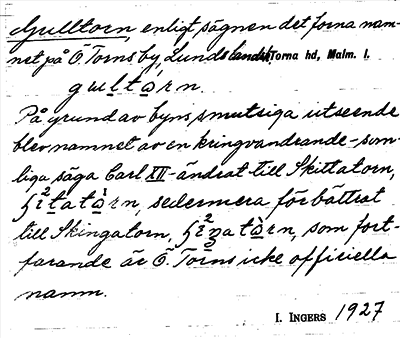 Gulltorn, enligt sägnen det forna nam-
net på Ö. Tornsby, Lunds landsf. Torna hd, Malm. l.
gultórn.
På grund av byns smutsiga utseende
blev namnet av en kringvandrande – som-
liga säga Carl XII – ändrat till Skittatorn,
sedermera förbättrat
till Skingatorn, som fort-
farande är Ö. Torns icke officiella
namn.
I. INGERS 1927